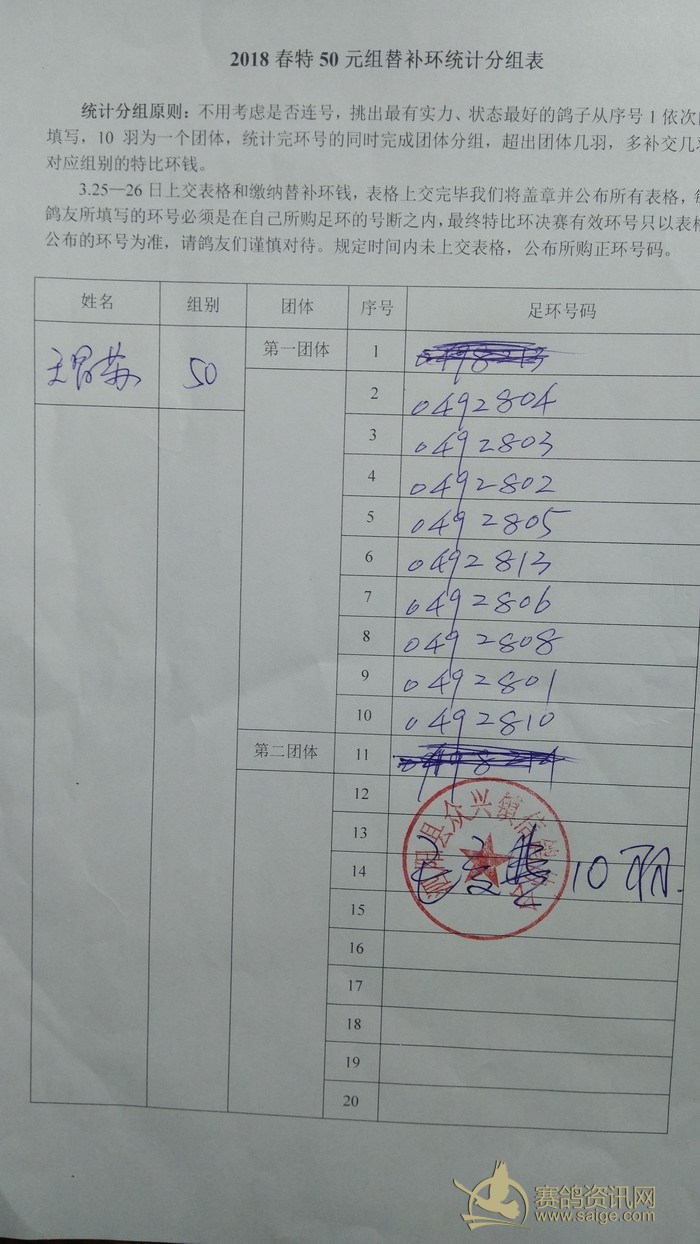 2018 春特 50 元组替补环统计分组表
统计分组原则：不用考虑是否连号，挑出最有实力、状态最好的鸽子从序号 1 依次
填写，10 羽为一个团体，统计完环号的同时完成团体分组，超出团体几羽，多补交几
对应组别的特比环钱。
3.25—26 日上交表格和缴纳替补环钱，表格上交完毕我们将盖章并公布所有表格，
鸽友所填写的环号必须是在自己所购足环的号断之内，最终特比环决赛有效环号只以表格
公布的环号为准，请鸽友们谨慎对待。规定时间内未上交表格，公布所购正环号码。
姓名 组别 团体 序号 足环号码
50 第一团体 1
2 0492804
3 0492803
4 0492802
5 0492805
6 0492813
7 0492806
8 0492808
9 0492801
10 0492810
第二团体 11
12
13
14 已交费 10 羽
15
16
17
18
19
20
阳县众兴镇信鸽
赛鸽资讯网
www.saige.com